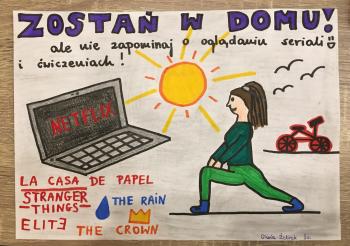 ZOSTAŃ W DOMU!
ale nie zapominaj o oglądaniu seriali
i ćwiczeniach!
NETFLIX
LA CASA DE PAPEL
STRANGER
-THINGS-
THE RAIN
ELITƎ
THE CROWN